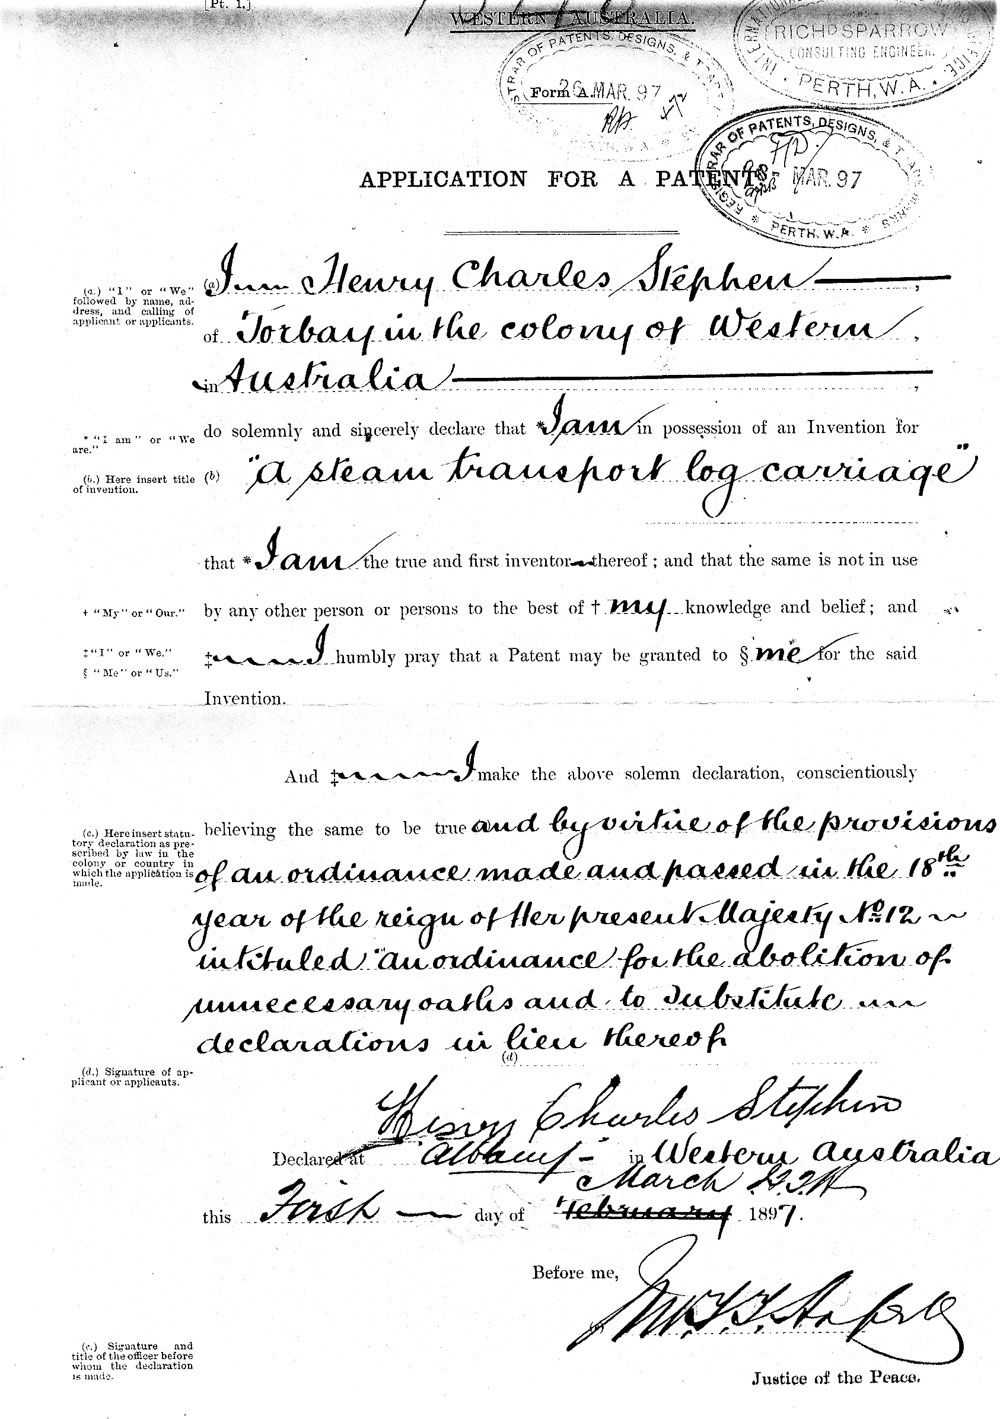 [Pt. 1.]
WESTERN AUSTRALIA.
INTERNATIONAL
RICHD SPARROW
CONSULTING ENGINEER.
PERTH, W.A.
REGISTRAR OF PATENTS, DESIGNS, &
26 MAR 97
PERTH, W.A.
Form A.
REGISTRAR OF PATENTS, DESIGNS, & T. MARKS
MAR. 97
PERTH, W.A.
APPLICATION FOR A PATENT.
(a.) "I" or "We" followed by name, ad-
dress, and calling of
applicant or applicants.
(a) I Henry Charles Stephen ,
of Torbay in the colony of Western ,
in Australia ,
* "I am" or "We
are."
do solemnly and sincerely declare that * I am in possession of an Invention for
(b.) Here insert title
of invention.
(b) "A steam transport log carriage"
that * I am the true and first inventor thereof ; and that the same is not in use
† "My" or "Our."
by any other person or persons to the best of † my knowledge and belief; and
‡ "I" or "We."
§ "Me" or "Us."
‡ I humbly pray that a Patent may be granted to § me for the said
Invention.
And ‡ I make the above solemn declaration, conscientiously
(c.) Here insert statu-
tory declaration as pre-
scribed by law in the
colony or country in
which the application is
made.
believing the same to be true and by virtue of the provisions
of an ordinance made and passed in the 18th
year of the reign of Her present Majesty No 12
intituled "An ordinance for the abolition of
unnecessary oaths and to substitute
declarations in lieu thereof
(d)
(d.) Signature of ap-
plicant or applicants.
Henry Charles Stephen
Declared at Albany in Western Australia
March
this First day of February 1897.
Before me,
(e.) Signature and
title of the officer before
whom the declaration
is made.
Justice of the Peace.